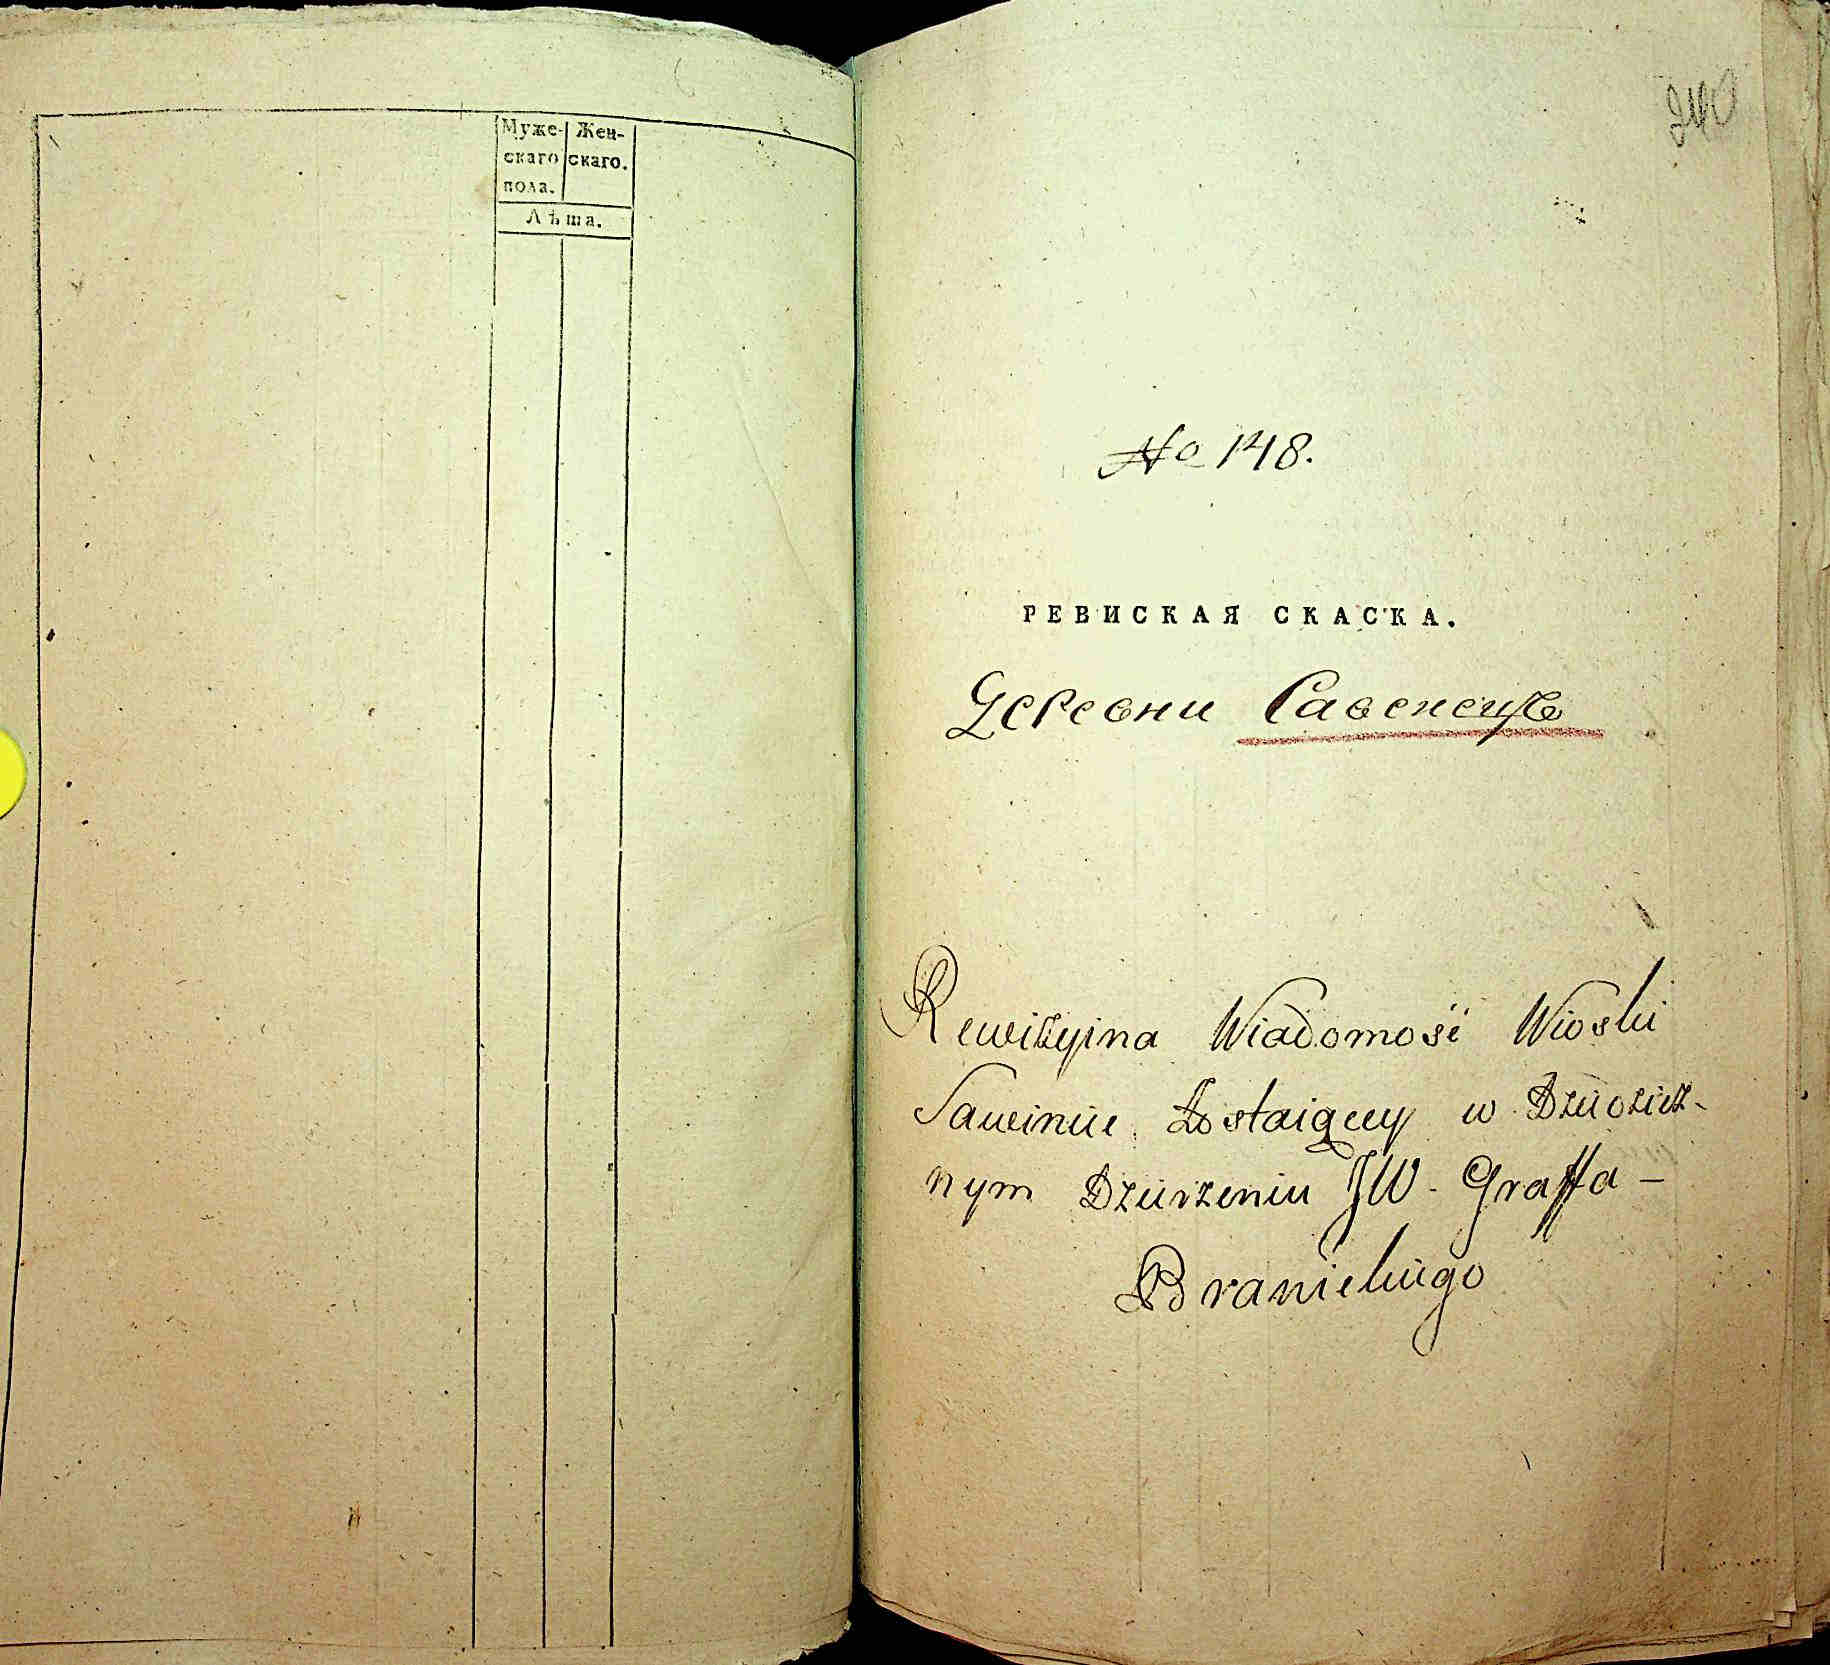 Муже- Жен-
скаго скаго.
пола.
Лѣта.
240
№ 148.
РЕВИСКАЯ СКАСКА.
Деревни Савенецъ
Rewizyina Wiadomość Wioski
Sawiniec Zostaiącey w Dziedzicz-
nym Dzierżeniu JW. Graffa –
Branickiego